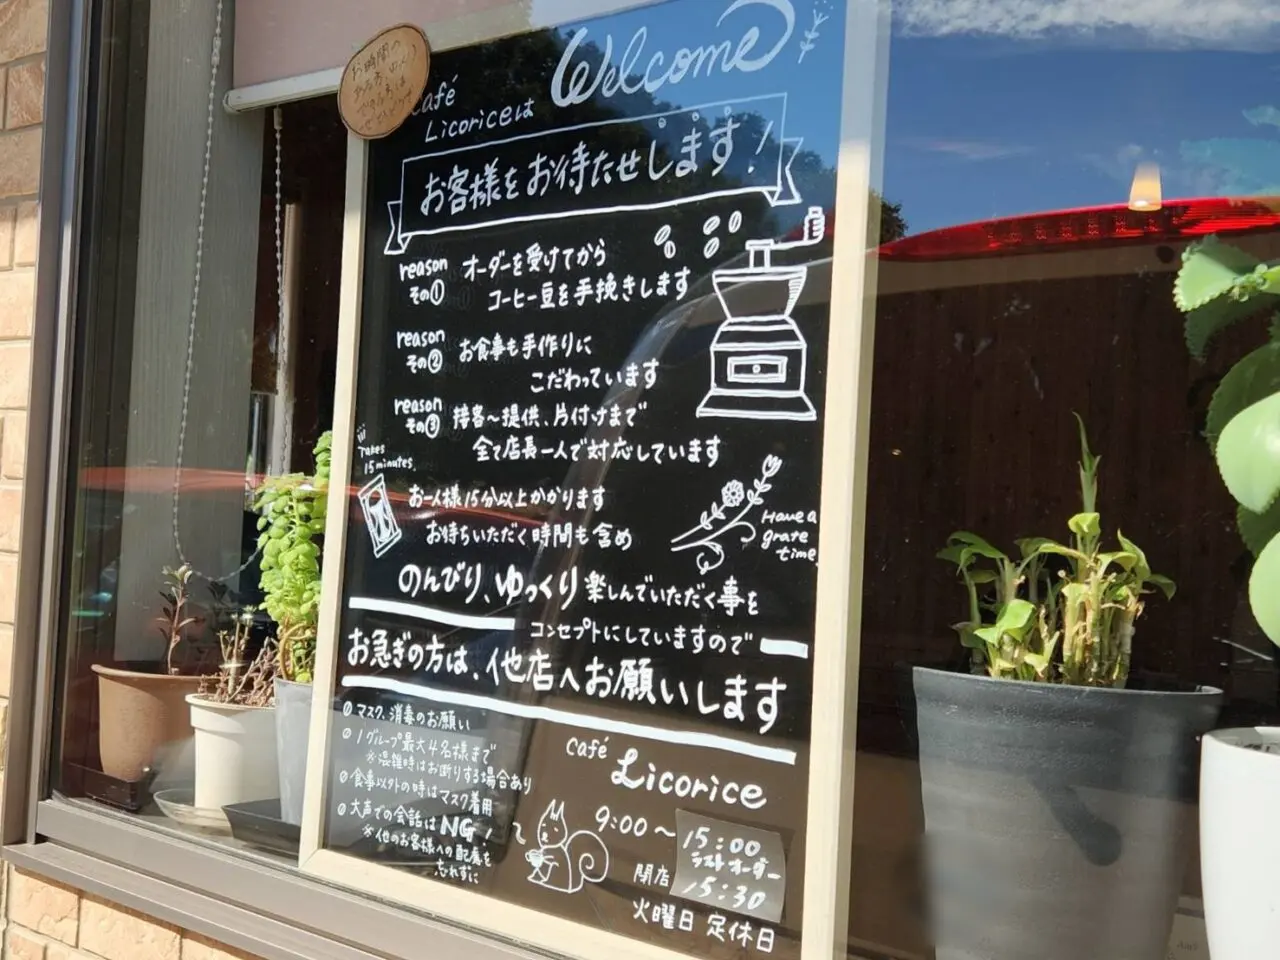 Welcome
お時間の
ある方のみ
ぜひ
café
Licoriceは
お客様をお待たせします!
reason
その①
オーダーを受けてから
コーヒー豆を手挽きします
reason
その②
お食事も手作りに
こだわっています
reason
その③
接客～提供、片付けまで
全て店長一人で対応しています
Takes
15minutes.
お一人様15分以上かかります
お待ちいただく時間も含め
Have a
grate
time.
のんびり、ゆっくり楽しんでいただく事を
コンセプトにしていますので
お急ぎの方は、他店へお願いします
マスク、消毒のお願い
1グループ最大4名様まで
※混雑時はお断りする場合あり
食事以外の時はマスク着用
大声での会話はNG!
※他のお客様への配慮を
忘れずに
café
Licorice
9:00～15:00
ラストオーダー
閉店 15:30
火曜日 定休日